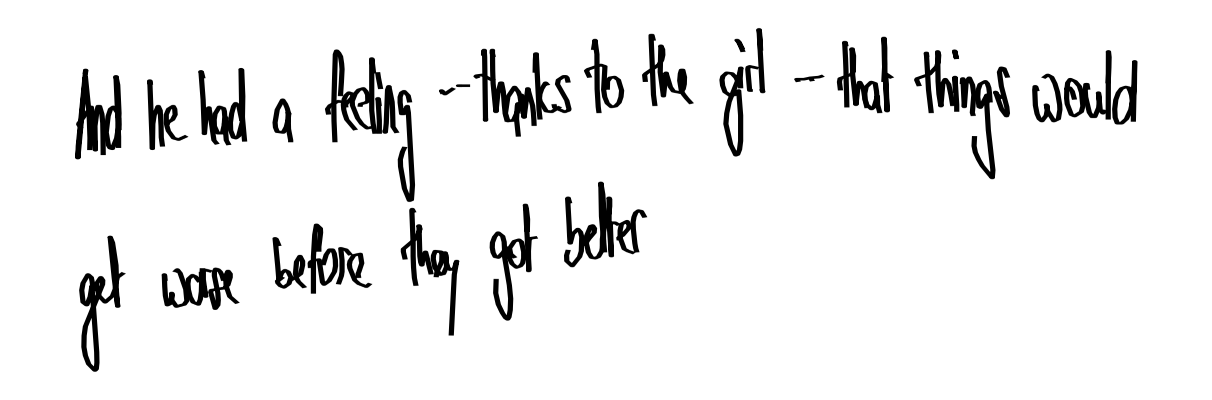 And he had a feeling -- thanks to the girl -- that things would
get worse before they got better